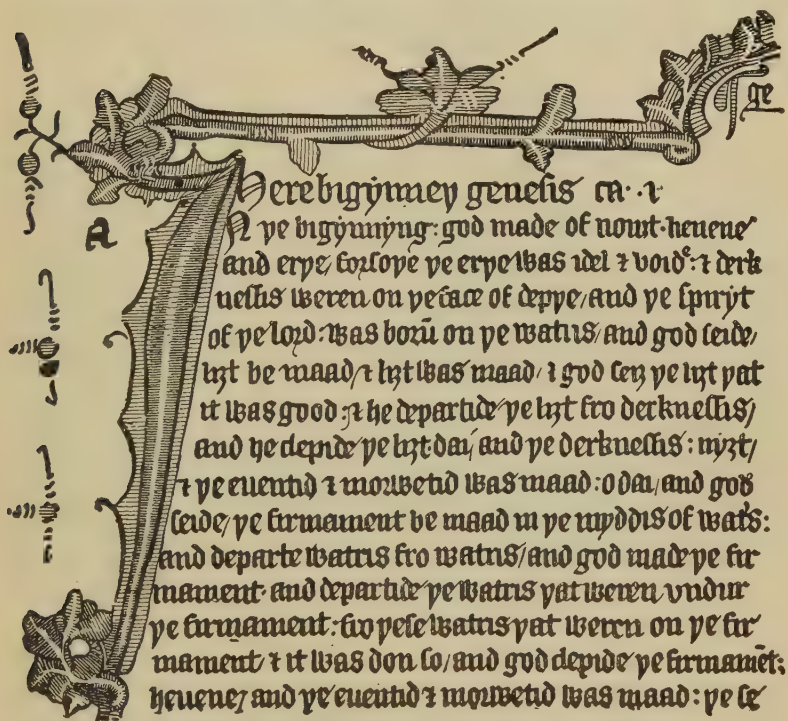 ge
Here bigynneþ genesis ca. i
A
IN þe bigynnyng: god made of nouȝt heuene
and erþe, forsoþe þe erþe was idel ⁊ void: ⁊ derk
nessis weren on þe face of depþe, and þe spiryt
of þe lord was borū on þe watris, and god seide,
liȝt be maad, ⁊ liȝt was maad, ⁊ god seȝ þe liȝt þat
it was good: ⁊ he departide þe liȝt fro derknessis,
and he clepide þe liȝt dai, and þe derknessis: nyȝt,
⁊ þe euentid ⁊ morwetid was maad: o dai, and god
seide, þe firmament be maad in þe myddis of wat's:
and departe watris fro watris, and god made þe fir
mament and departide þe watris þat weren vndur
þe firmament: fro þese watris þat weren on þe fir
mament, ⁊ it was don so, and god clepide þe firmamēt:
heuene, and þe euentid ⁊ morwetid was maad: þe se